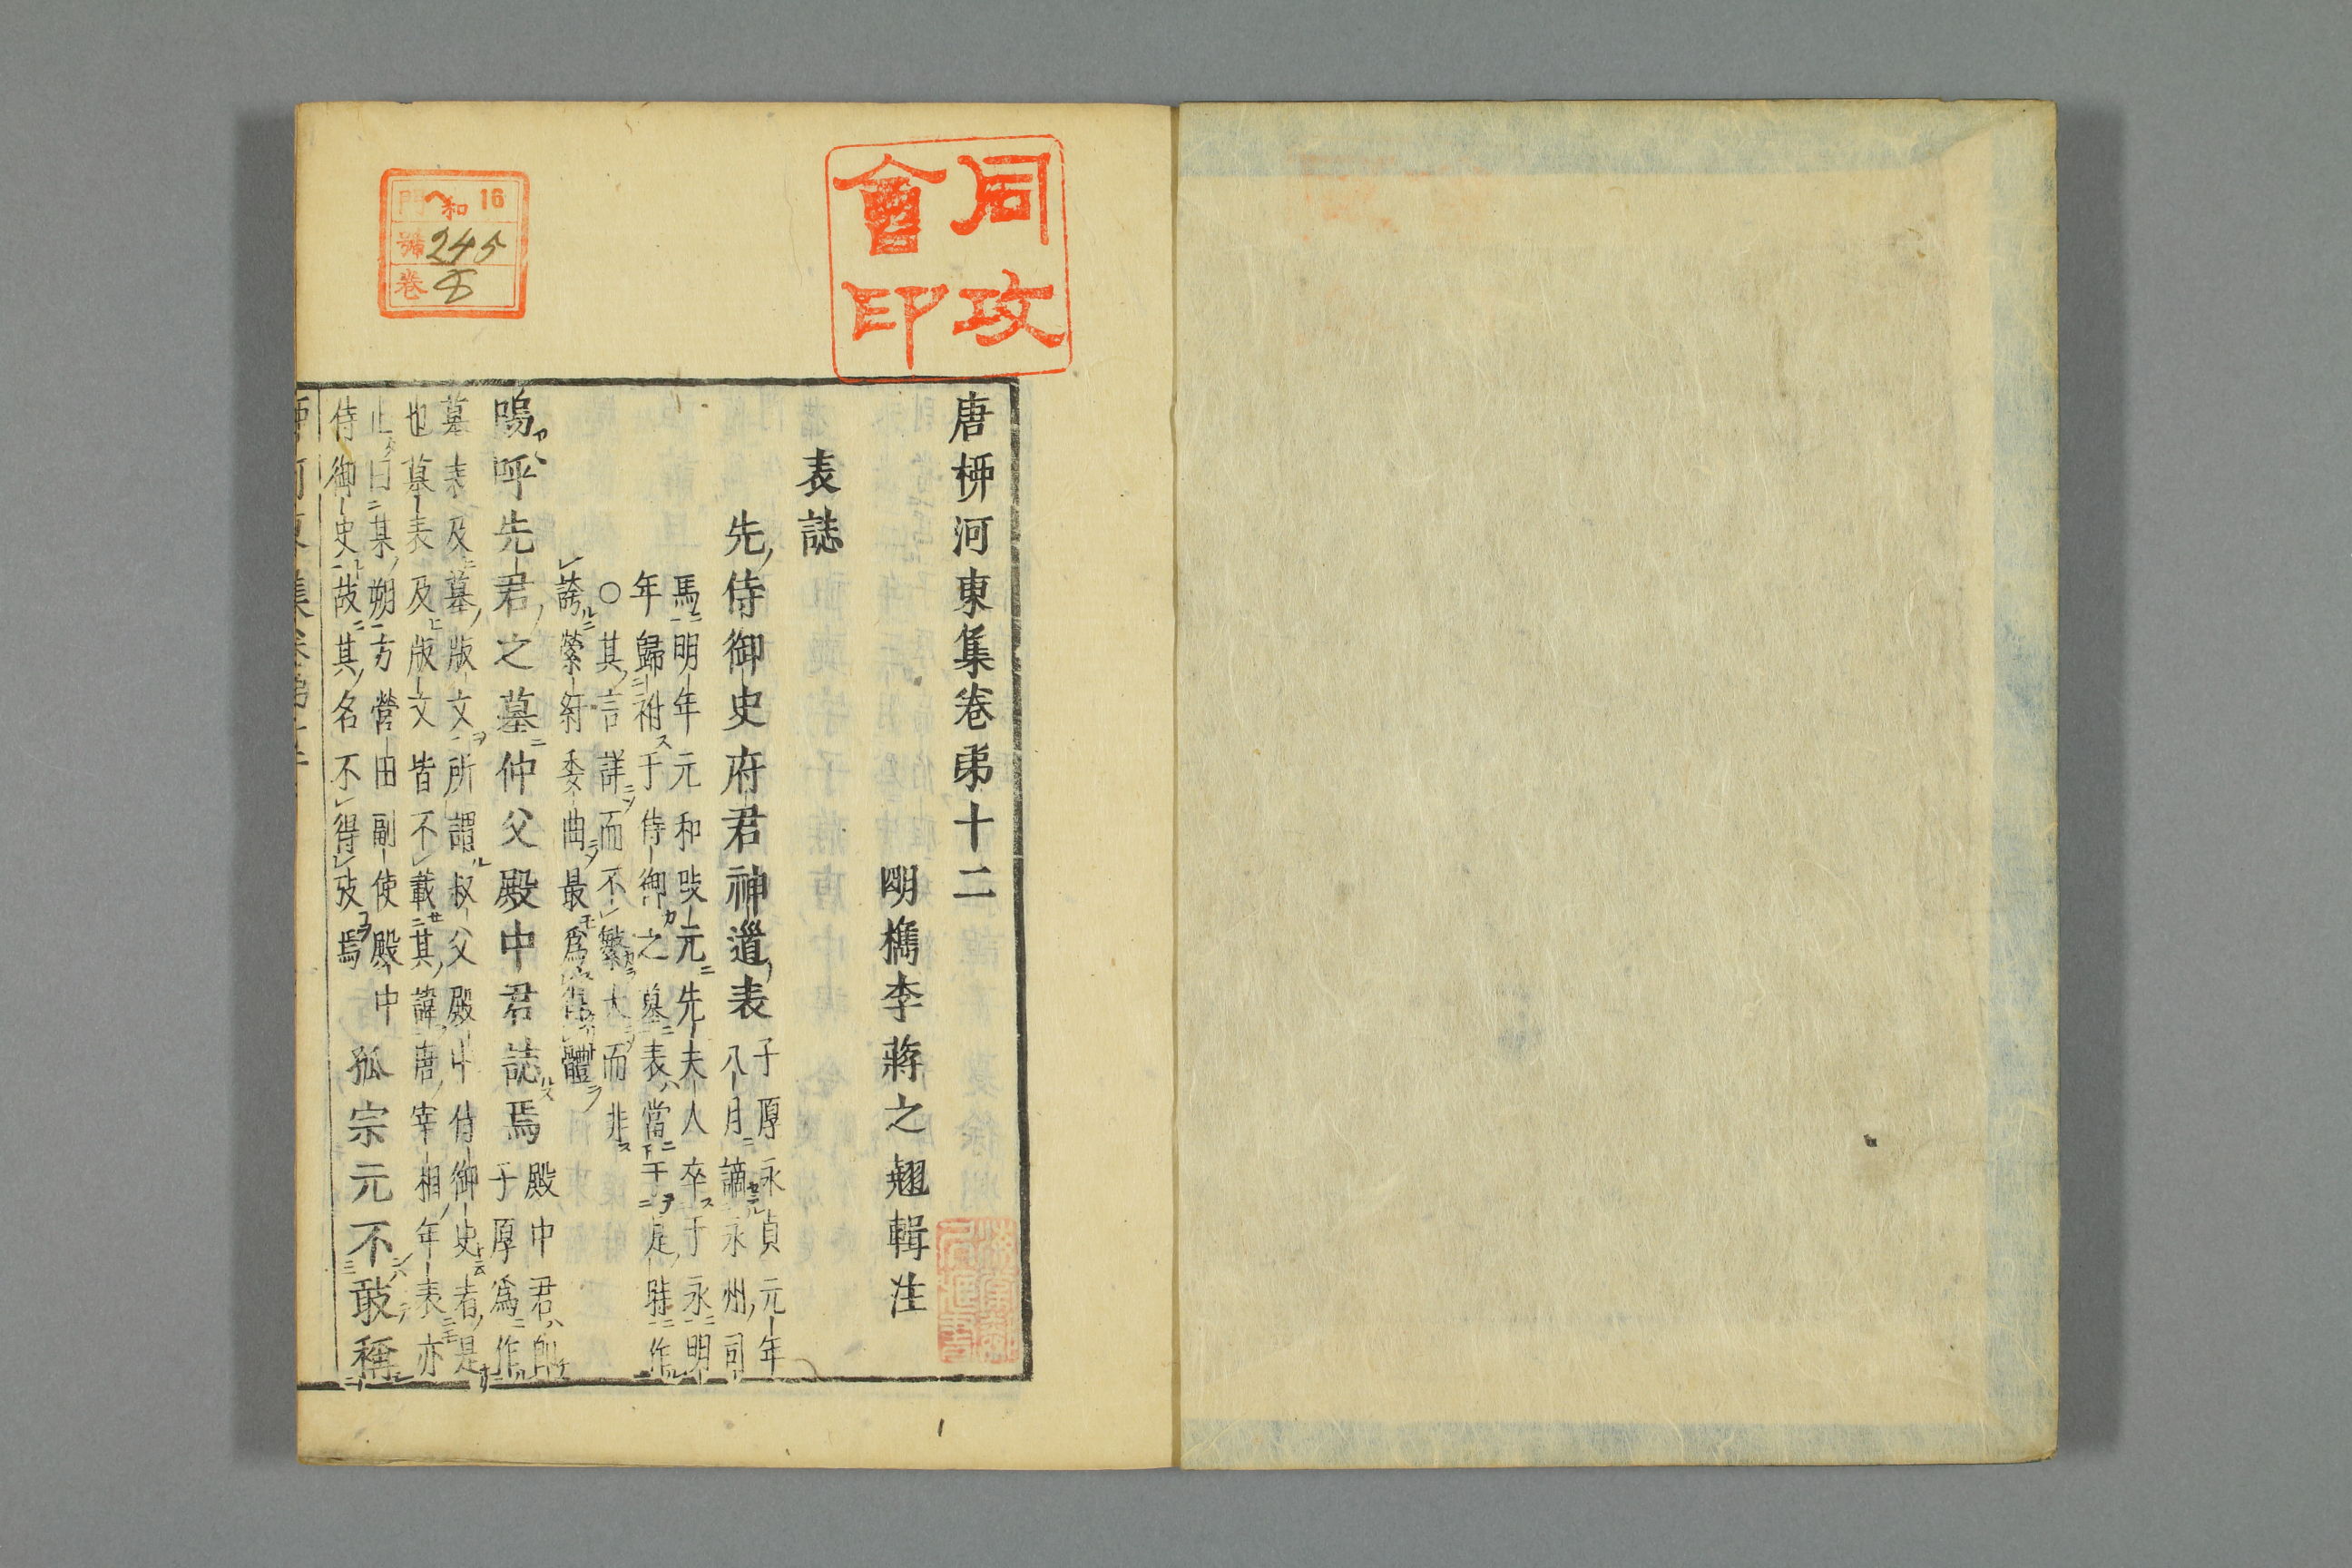 唐栁河東集卷苐十二
明檇李蔣之翹輯注
表誌
先侍御史府君神道表
子厚永貞元年
八月謫永州司
馬明年元和改元先夫人卒于永明
年歸祔于侍御之墓表當干是時作
○其言詳而不繁大而非
誇縈紆委曲最爲得體
嗚呼先君之墓仲父殿中君誌焉
殿中君卽
子厚爲作
墓表及墓版文所謂叔父殿中侍御史者是
也墓表及版文皆不載其諱唐宰相年表亦
止曰某朔方營田副使殿中
侍御史故其名不得攷焉
孤宗元不敢稱
同攻會印
門 ヘ和 16
號 245
卷 5